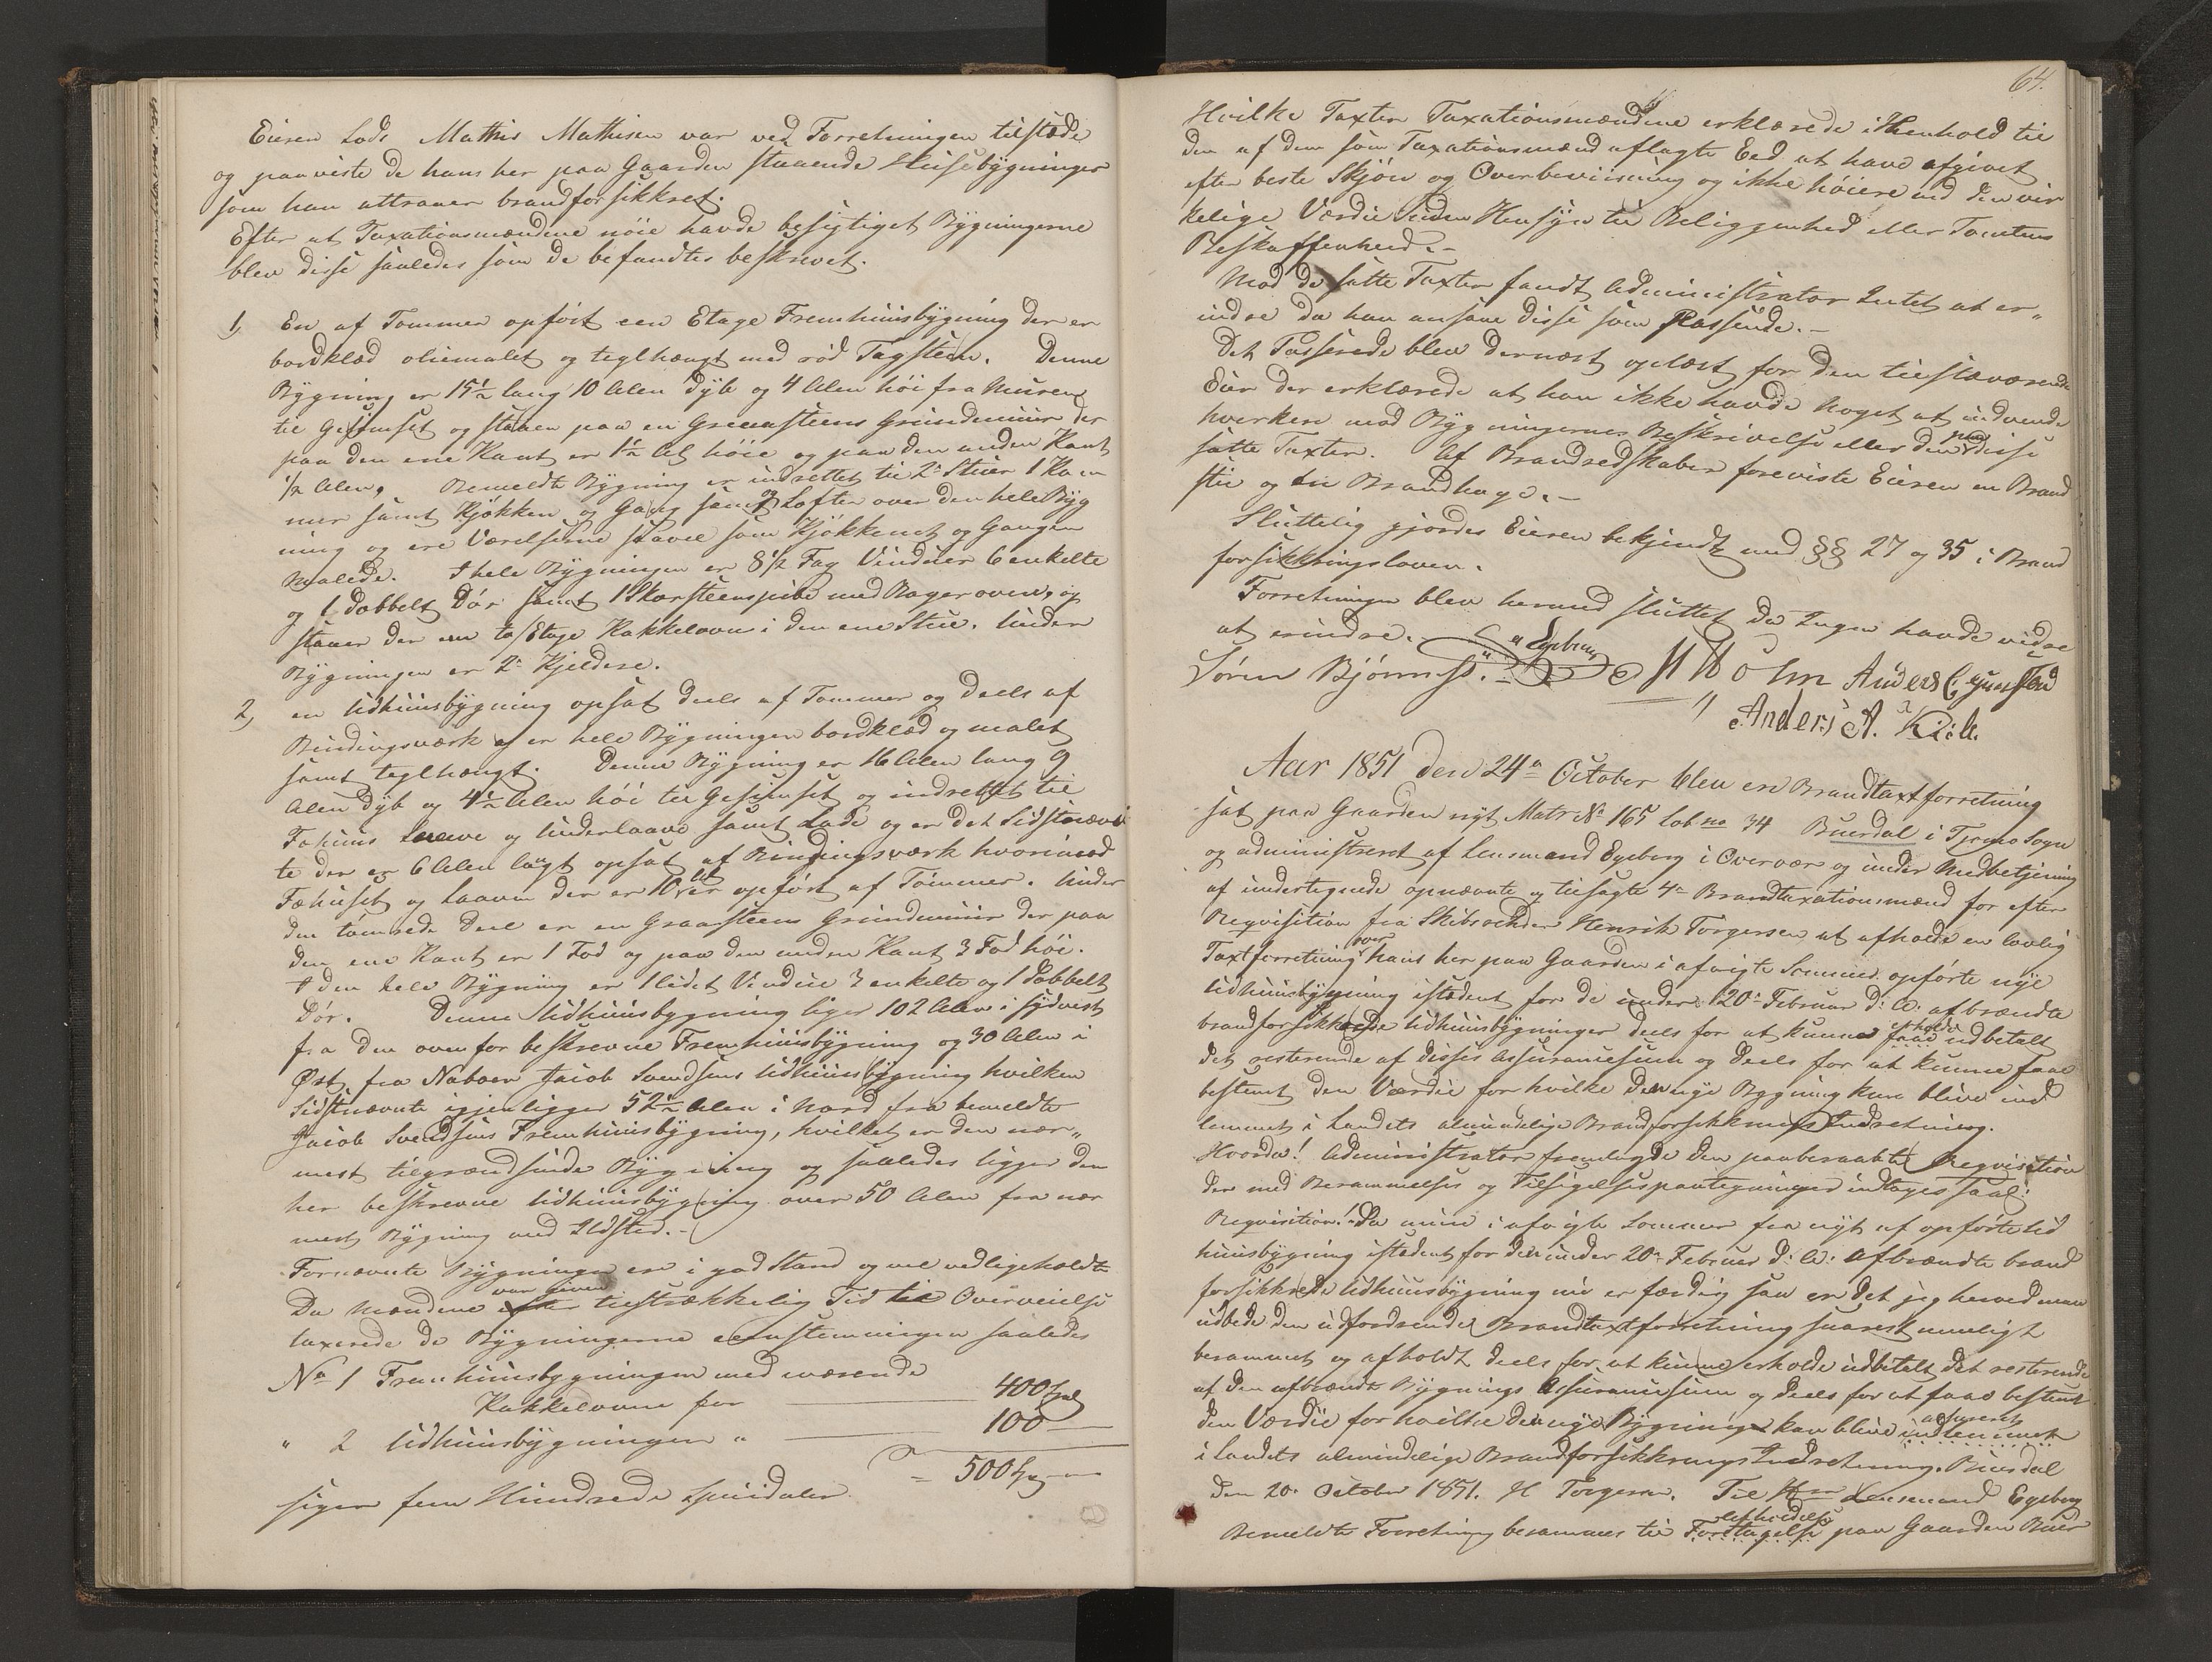 Eieren Lods Mathis Mathisen var ved Forretningen tilstæde
og paaviste de hans her paa Gaarden staaende Huusebygninger
som han attraaer brandforsikkret.
Efter at Taxationsmændene nöie havde besigtiget Bygningerne
blev disse saaledes som de befandtes beskrevet.
1, En af Tømmer opfört een Etage Fremhuusbygning der er
bordklæd oliemalet og teglhængt med röd Tagsteen. Denne
Bygning er 15½ lang 10 Alen dyb og 4 Alen höi fra Muren
til Gesimset og staaer paa en Graasteens Grundmuur der
paa den ene Kant er 1½ Al höie og paa den anden Kant
½ Alen, Bemeldte Bygning er indrettet til 2 Stuer 1 Kam
mer samt Kjökken og Gang samt Loft over den hele Byg
ning og ere Værelserne saavel som Kjökkenet og Gangen
Malede. I hele Bygningen er 8½ Fag Vinduer 6 enkelte
og 1 dobbelt Dör samt 1 Skorsteenspibe med Bagerovn, og
staaer der en to Etage Kakkelovn i den ene Stue. Under
Bygningen er 2 Kjeldere.
2, en Udhuusbygning opsat deels af Tømmer og deels af
Bindingsværk og er hele Bygningen bordklæd og malet
samt teglhængt. Denne Bygning er 16 Alen lang 9
Alen dyb og 4½ Alen höi til Gesimset og indrettet til
Fæhuus Laave og Underlaave samt Lade og er det Sidstnævn
te der er 6 Alen langt opsat af Bindingsværk hvorimod
Fæhuset og Laaven der er 10 Al er opfört af Tömmer. Under
den tömrede Deel er en Graasteens Grundmuur der paa
den ene Kant er 1 Fod og paa den anden Kant 3 Fod höi.
I den hele Bygning er 1 lidet Vindue 3 enkelte og 1 dobbelt
Dör. Denne Udhuusbygning liger 102 Alen i sydvest
fra den ovenfor beskrevne Fremhuusbygning og 30 Alen i
Øst fra Naboen Jacob Svendsens Udhuusbygning hvilken
Sidstnævnte igjen ligger 52½ Alen i Nord fra bemeldte
Jacob Svendsens Fremhuusbygning, hvilket er den nær„
mest tilgrændsende Bygning og saaledes ligger den
her beskrevne Udhuusbygning over 50 Alen fra nær
mest Bygning med Ildsted.-
Fornævnte Bygninger er i god Stand og vel vedligeholdt
Da Mændene var given tilstrækkelig Tid til Overveielse
taxerede de Bygningerne eenstemmingen saaledes
No 1 Fremhuusbygningen med værende
Kakkelovne for 400 Spd
" 2 Udhuusbygningen " 100 —
= 500 Spd
siger fem Hundrede Speciedaler
64.
Hvilke Taxter Taxationsmændene erklærede i Henhold til
den af dem som Taxationsmænd aflagte Eed at have afgivet
efter beste Skjön og Overbeviisning og ikke höiere end den vir
kelige Værdie uden Hensyn til Beliggenhed eller Tomtens
Beskaffenhed.-
Mod de satte Taxter fandt Administrator Intet at er„
indre da han ansaae disse som Passende.-
Det Passerede blev dernæst oplæst for den tilstæværende
Eier der erklærede at han ikke havde Noget at indvende
hverken mod Bygningernes Beskrivelse eller den paa disse
satte Taxter. Af Brandredskaber foreviste Eieren en Brand
stie og en Brandhage.-
Sluttelig gjordes Eieren bekjendt med §§ 27 og 35 i Brand
forsikkringsloven.
Forretningen blev hermed sluttet da Ingen havde videre
at erindre. Egeberg
Sören Björness. Holm Anders Gunsted
Anders A. Kiil.
Aar 1851 den 24de October blev en Brandtaxtforretning
sat paa Gaarden nyt Matr No 165 Lob no 34 Buerdal i Tjomo Sogn
og administreret af Lensmand Egeberg i Overvær og under Medbetjening
af undertegnede opnævnte og tilsagte 4 Brandtaxationsmænd for efter
Reqvisition fra Skibsrheder Henrik Torgersen at afholde en lovlig
Taxtforretning over hans her paa Gaarden i afvigte Sommer opførte nye
Udhuusbygning istædent for de under 20 Februar d: A: afbrændte
brandforsikkrede Udhuusbygninger deels for at kunne erholde udbetalt
det resterende af disses Assurancesum og deels for at kunne faae
bestemt den Værdie for hvilke den nye Bygning kan blive ind
lemmet i Landets almindelige Brandforsikkrings Indretning.
Hvorda! Administrator fremlagde den paaberaabte Reqvisition
der med Berammelses og Tilsigelsespaategninger indtages saal:
Reqvisition! Da min i afvigte Sommer fra nyt af opførte Ud
huusbygning istedent for den under 20 Februar d: A: afbrændte brand
forsikkrede Udhuusbygning nu er færdig saa er det jeg herved maa
udbede den udfordrende Brandtaxtforretning snarest mueligt
berammet og afholdt deels for at kunne erholde udbetalt det resterende
af den afbrændte Bygnings Assurancesum og deels for at faae bestemt
den Værdie for hvilke den nye Bygning kan blive assureret indlemmet
i Landets almindelige Brandforsikkrings Indretning. Buerdal
den 20 October 1851. H Torgersen. Til Hrr Lensmand Egeberg
Bemeldte Forretning berammes til Afholdelse Forstagelse paa Gaarden Buer